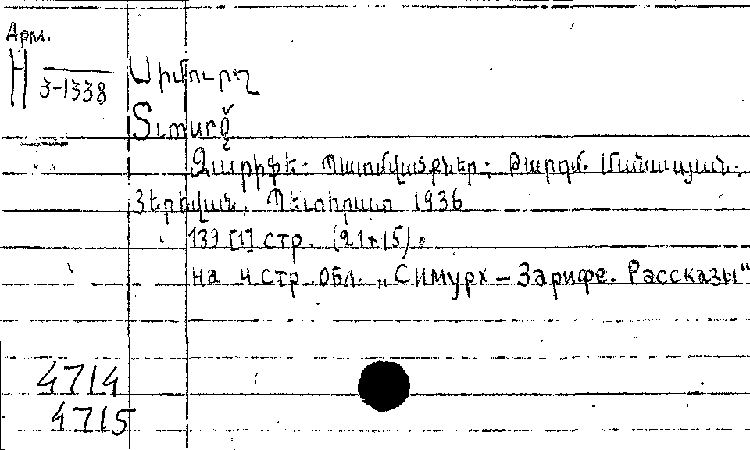 Арм.
H
3-1338
Սիմուրղ
Simurğ
Զարիֆե: Պատմվածքներ: Թարգմ. Մանասյան.
Յերեվան. Պետհրատ 1936
139 [1] стр. (21×15).
на 4 стр обл. „Симурх – Зарифе. Рассказы“
4714
4715